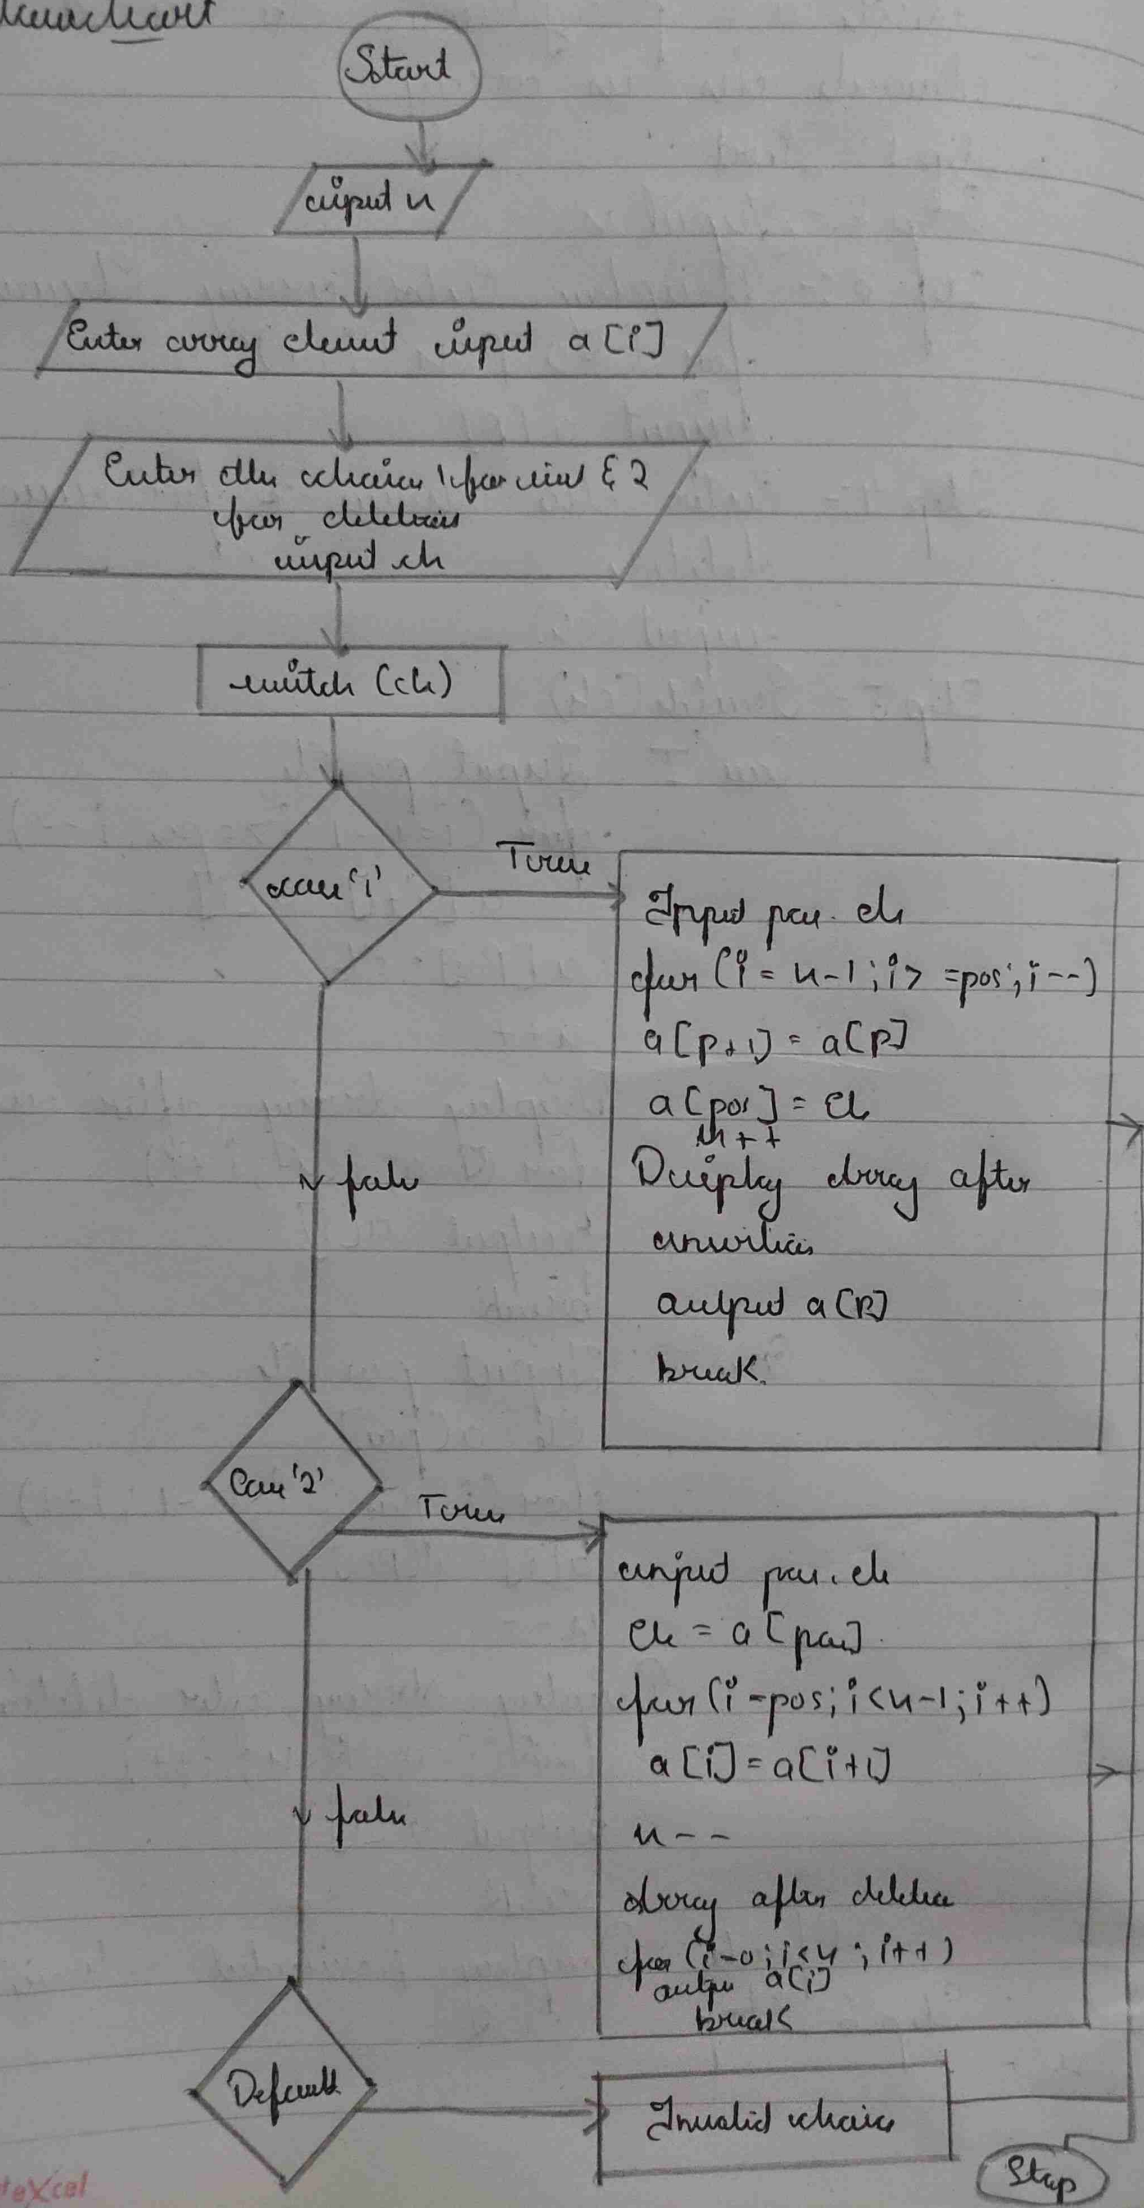 Flowchart
Start
input n
Enter array element input a[i]
Enter the choice 1 for inst & 2
for deletion
input ch
switch (ch)
case '1'
True
Input pos. ele
for (i = n-1; i> =pos; i--)
a[p+1] = a[p]
a[pos] = ele
n++
Display array after
insertion
output a[p]
break.
false
Case '2'
True
input pos. ele
ele = a[pos].
for (i=pos; i<n-1; i++)
a[i] = a[i+1]
n--
array after deletion
for (i=0; i<n; i++)
output a[i]
break
false
Default
Invalid choice
Stop